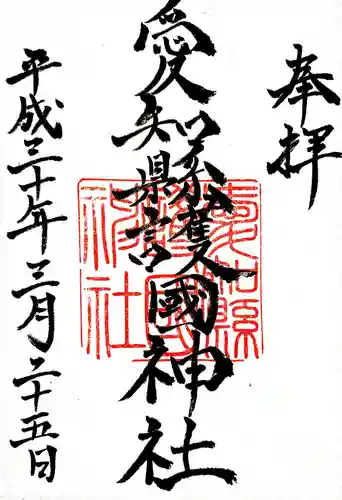 奉拝
愛知縣護國神社
愛知縣護國神社
平成三十年三月二十五日